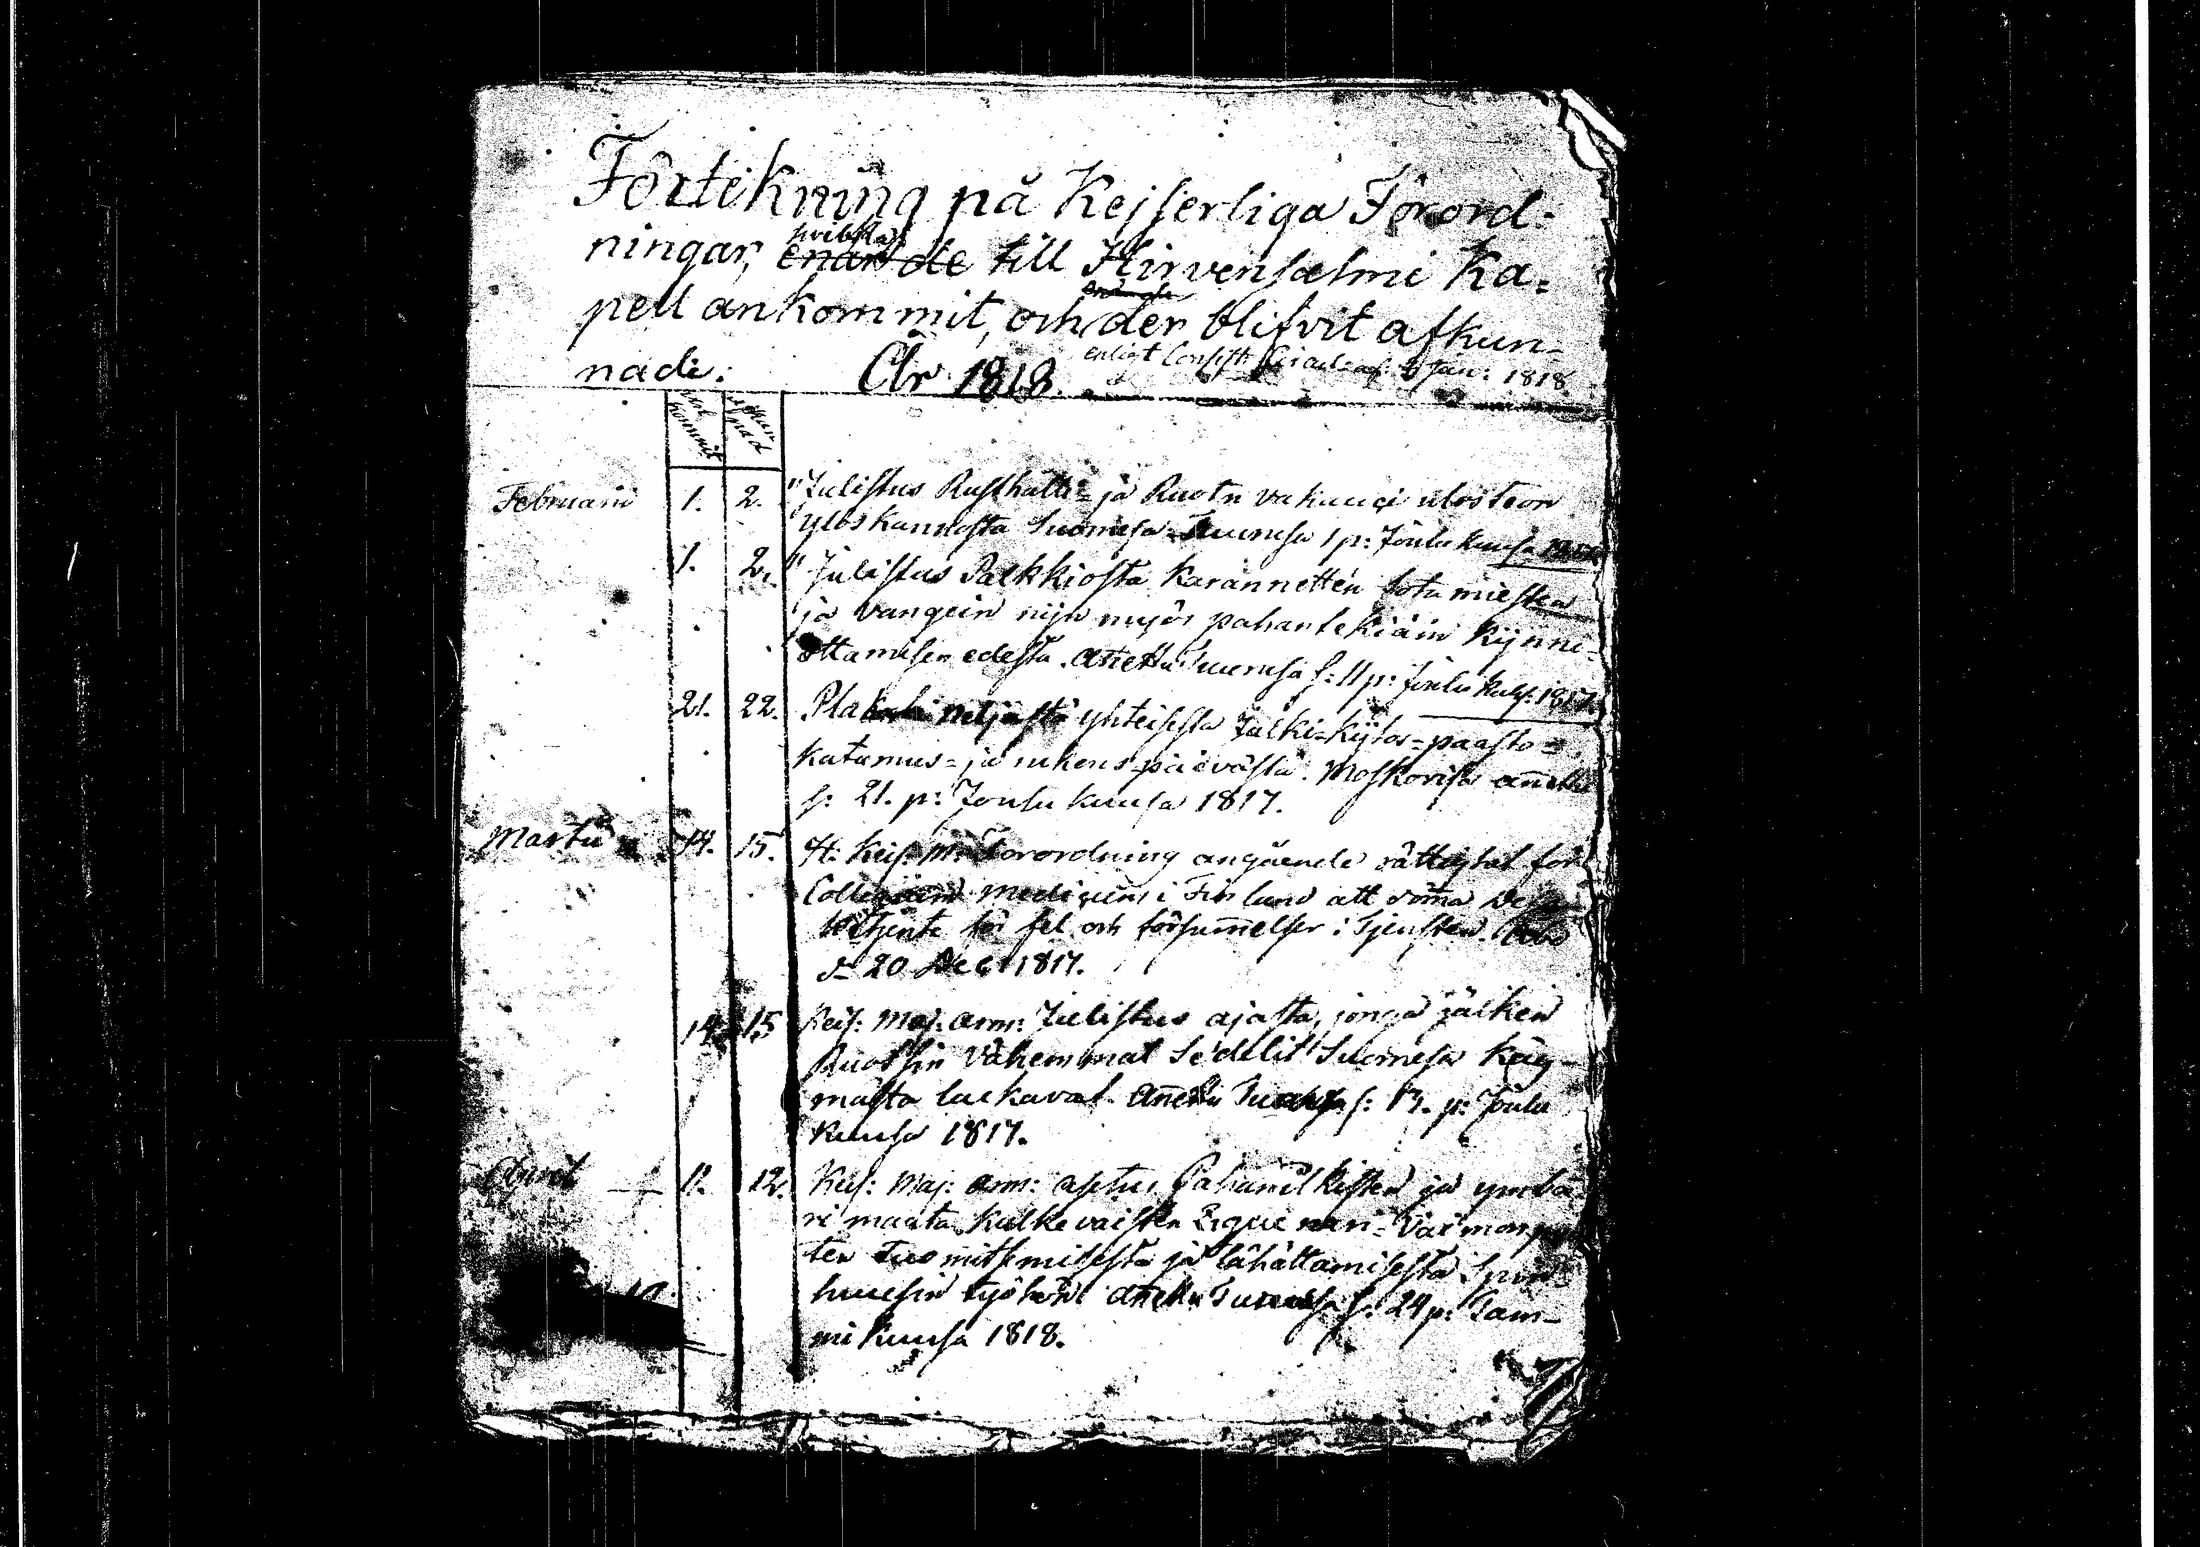 Förtekning på Kejserliga Förord-
ningar, hvilka enär de till Hirvensalmi Ka-
pell ankommit, och der blifvit afkun-
nade: År 1818. enligt Consist: Circulair af: Jan: 1818
ankommit afkunnad
Februarii 1. 2. Julistus Rusthålli- ja Ruotu vakanci ulosteon
yloskannosta Suomesa Turusa 1 p: Joulu kuusa
1. 2. Julistus Palkkiosta karannetten sotamiesten
ja vangein nijn myös pahantekiäin kijnni-
ottamisen edestä. Annettu Turusa s: 11 p: Joulu kuus: 1817.
21. 22. Plakati neljästä yhteisestä Julki-kijtos-paasto-
katumus- ja rukous-päivästä. Moskovisa annettu
s: 21. p: Joulu kuusa 1817.
Martii 14. 15. H: Keis: M: Förordning angående rättighet för
Collegium medicum i Finland att döma
för fel och försummelser i Tjensten. Åbo
d: 20 Dec: 1817.
14. 15 Keis: Maj: arm: Julistus ajasta, jonga jälken
Ruotsin vähemmat Sedelit Suomesa käy-
mästä lackavat. Annettu Turusa s: 13. p: Joulu
kuusa 1817.
April 11. 12. Keis: Maj: arm: asetus Pahanilkisten ja ymbä-
ri maata kulkevaisten Zigueneri- Vaimon
ten Tuomitsemisesta ja lähättämisestä Spin-
huusin työhön. annettu Turusa s: 24 p: Tam-
mikuusa 1818.